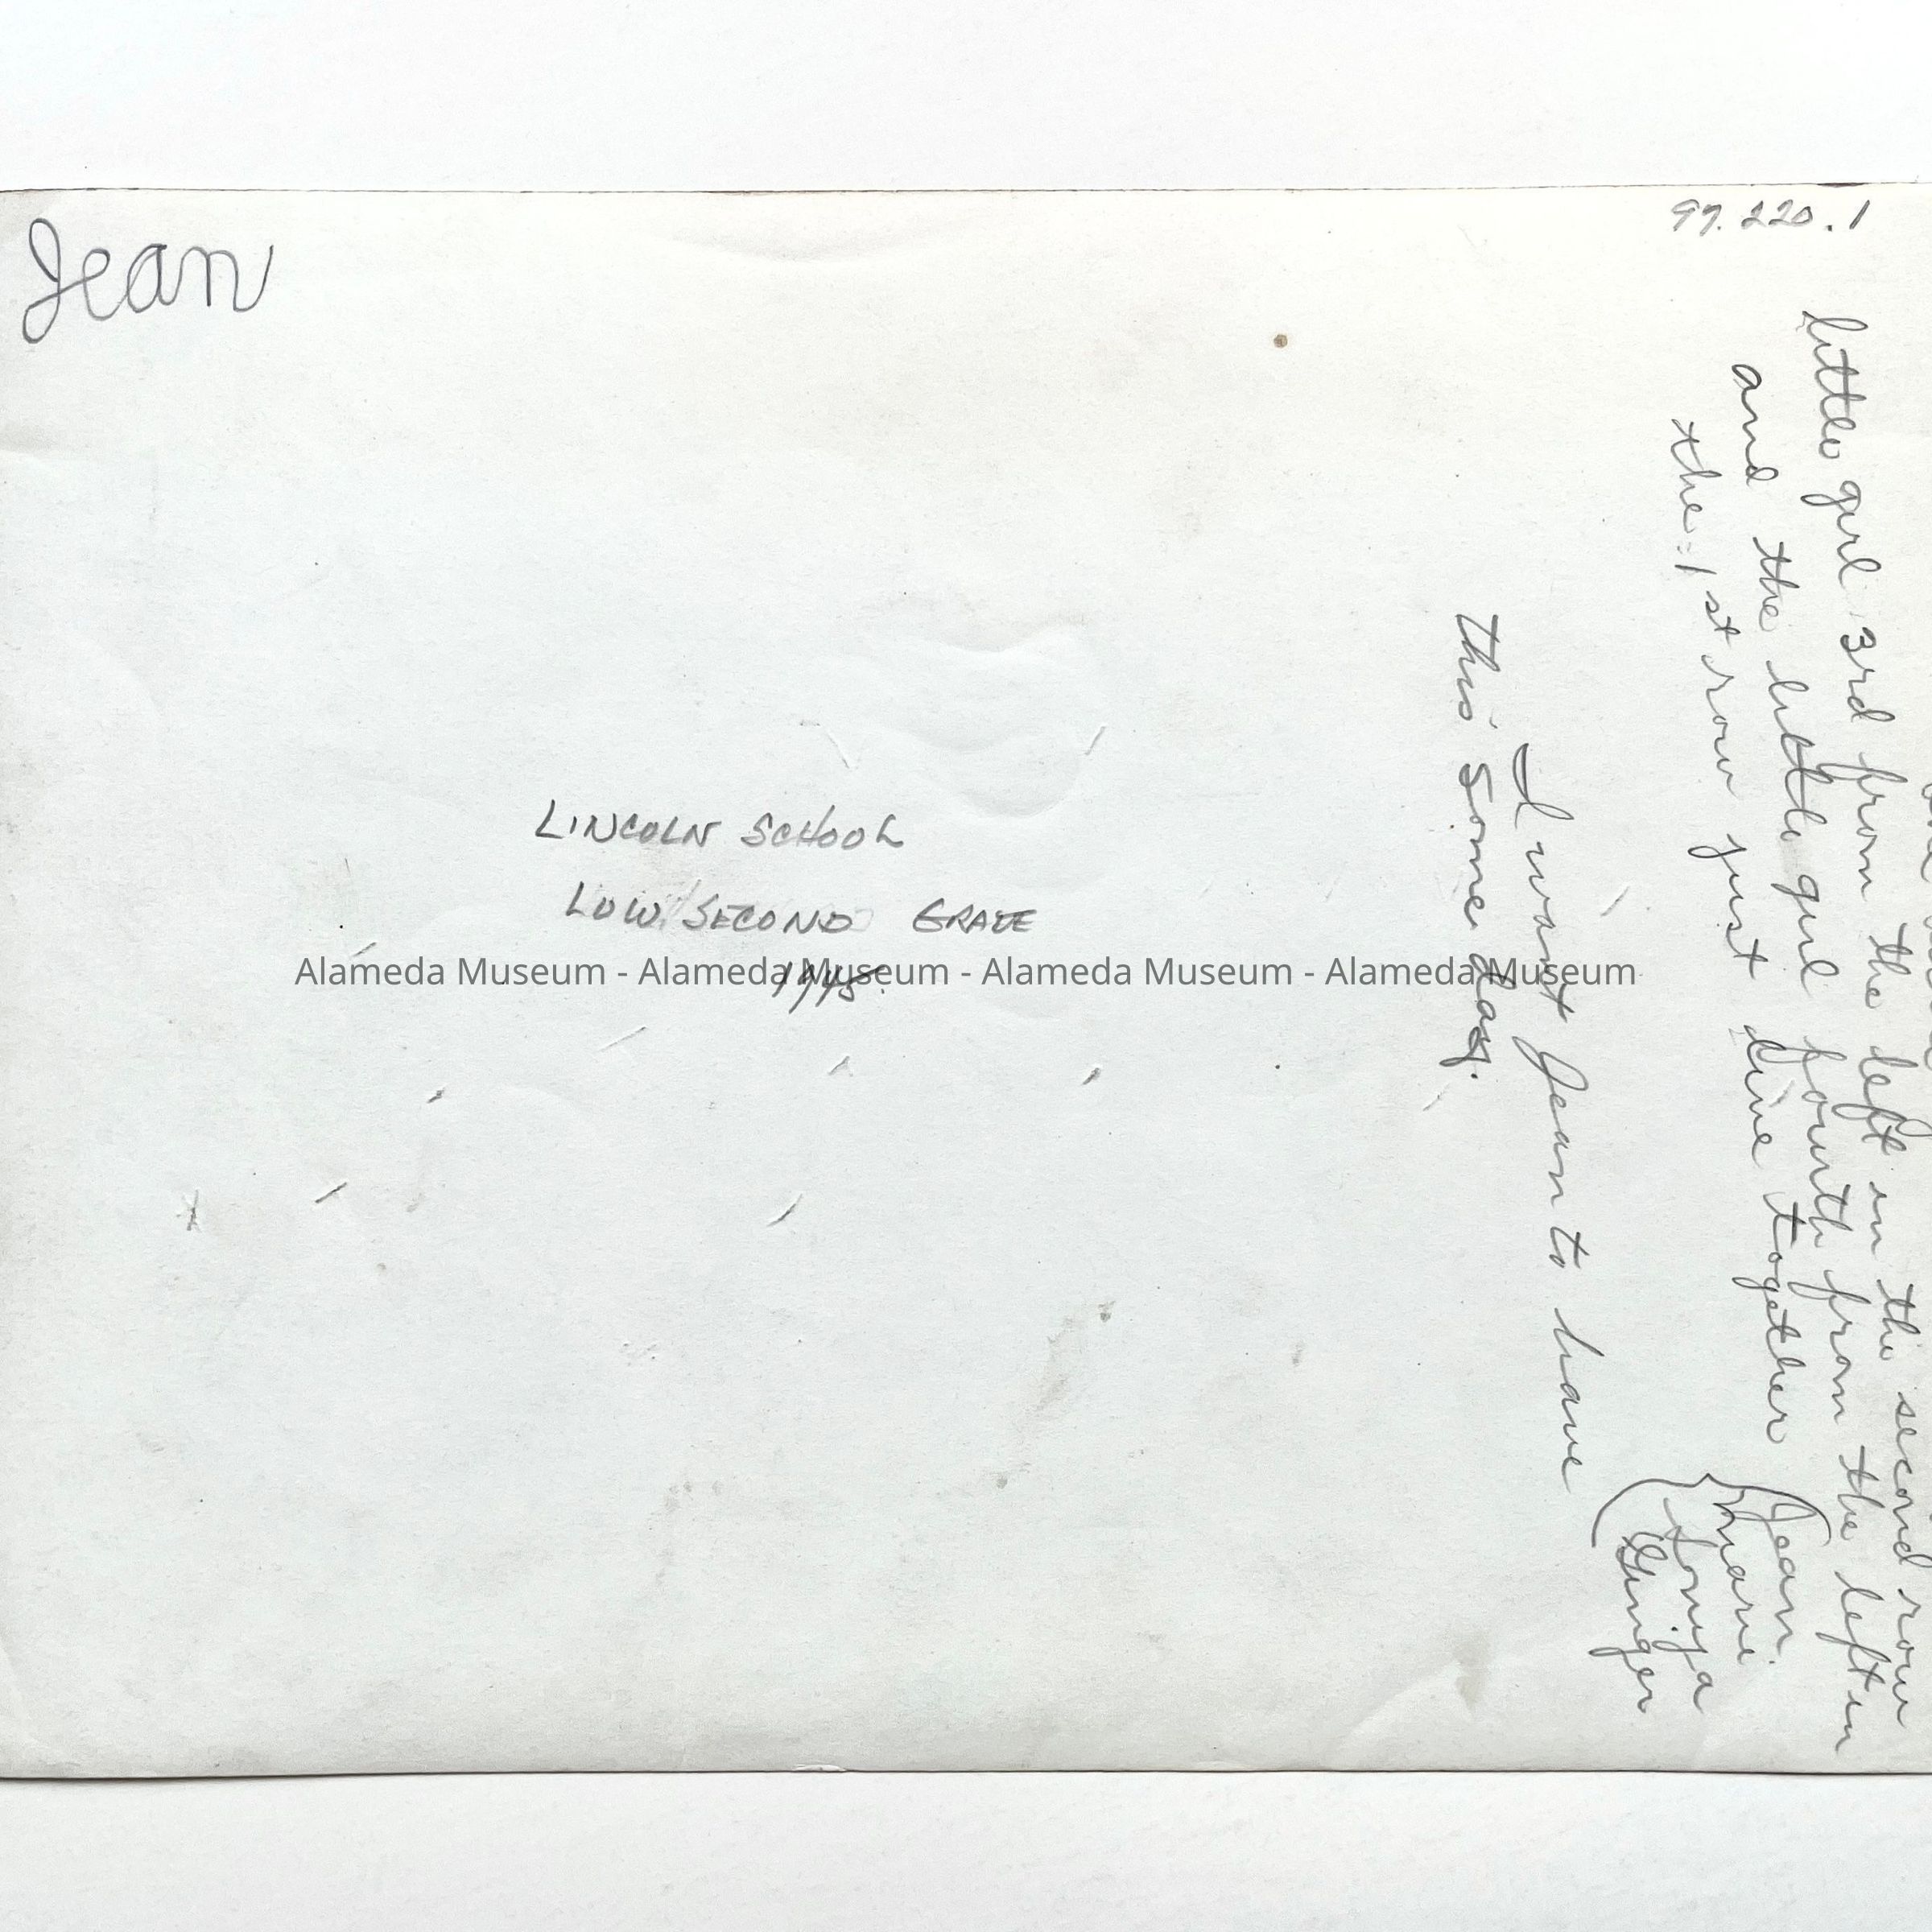 Jean
97.220.1
LINCOLN SCHOOL
LOW SECOND GRADE
1945.
Alameda Museum - Alameda Museum - Alameda Museum - Alameda Museum
little girl 3rd from the left in the second row
and the little girl fourth from the left in
the 1st row just live together
Jean
marie
Sonja
Ginger
I want Jean to have
this some day.